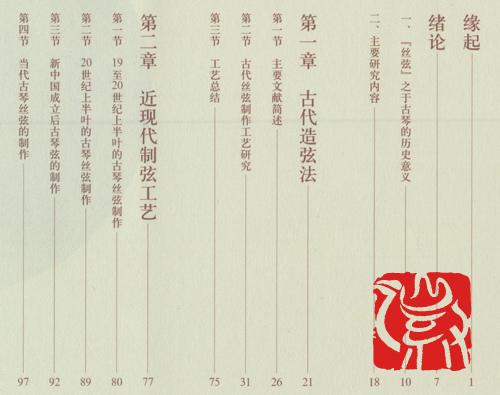 缘起 1
绪论 7
一、『丝弦』之于古琴的历史意义 10
二、主要研究内容 18
第一章 古代造弦法 21
第一节 主要文献简述 26
第二节 古代丝弦制作工艺研究 31
第三节 工艺总结 75
第二章 近现代制弦工艺 77
第一节 19至20世纪上半叶的古琴丝弦制作 80
第二节 20世纪上半叶的古琴丝弦制作 89
第三节 新中国成立后古琴弦的制作 92
第四节 当代古琴丝弦的制作 97